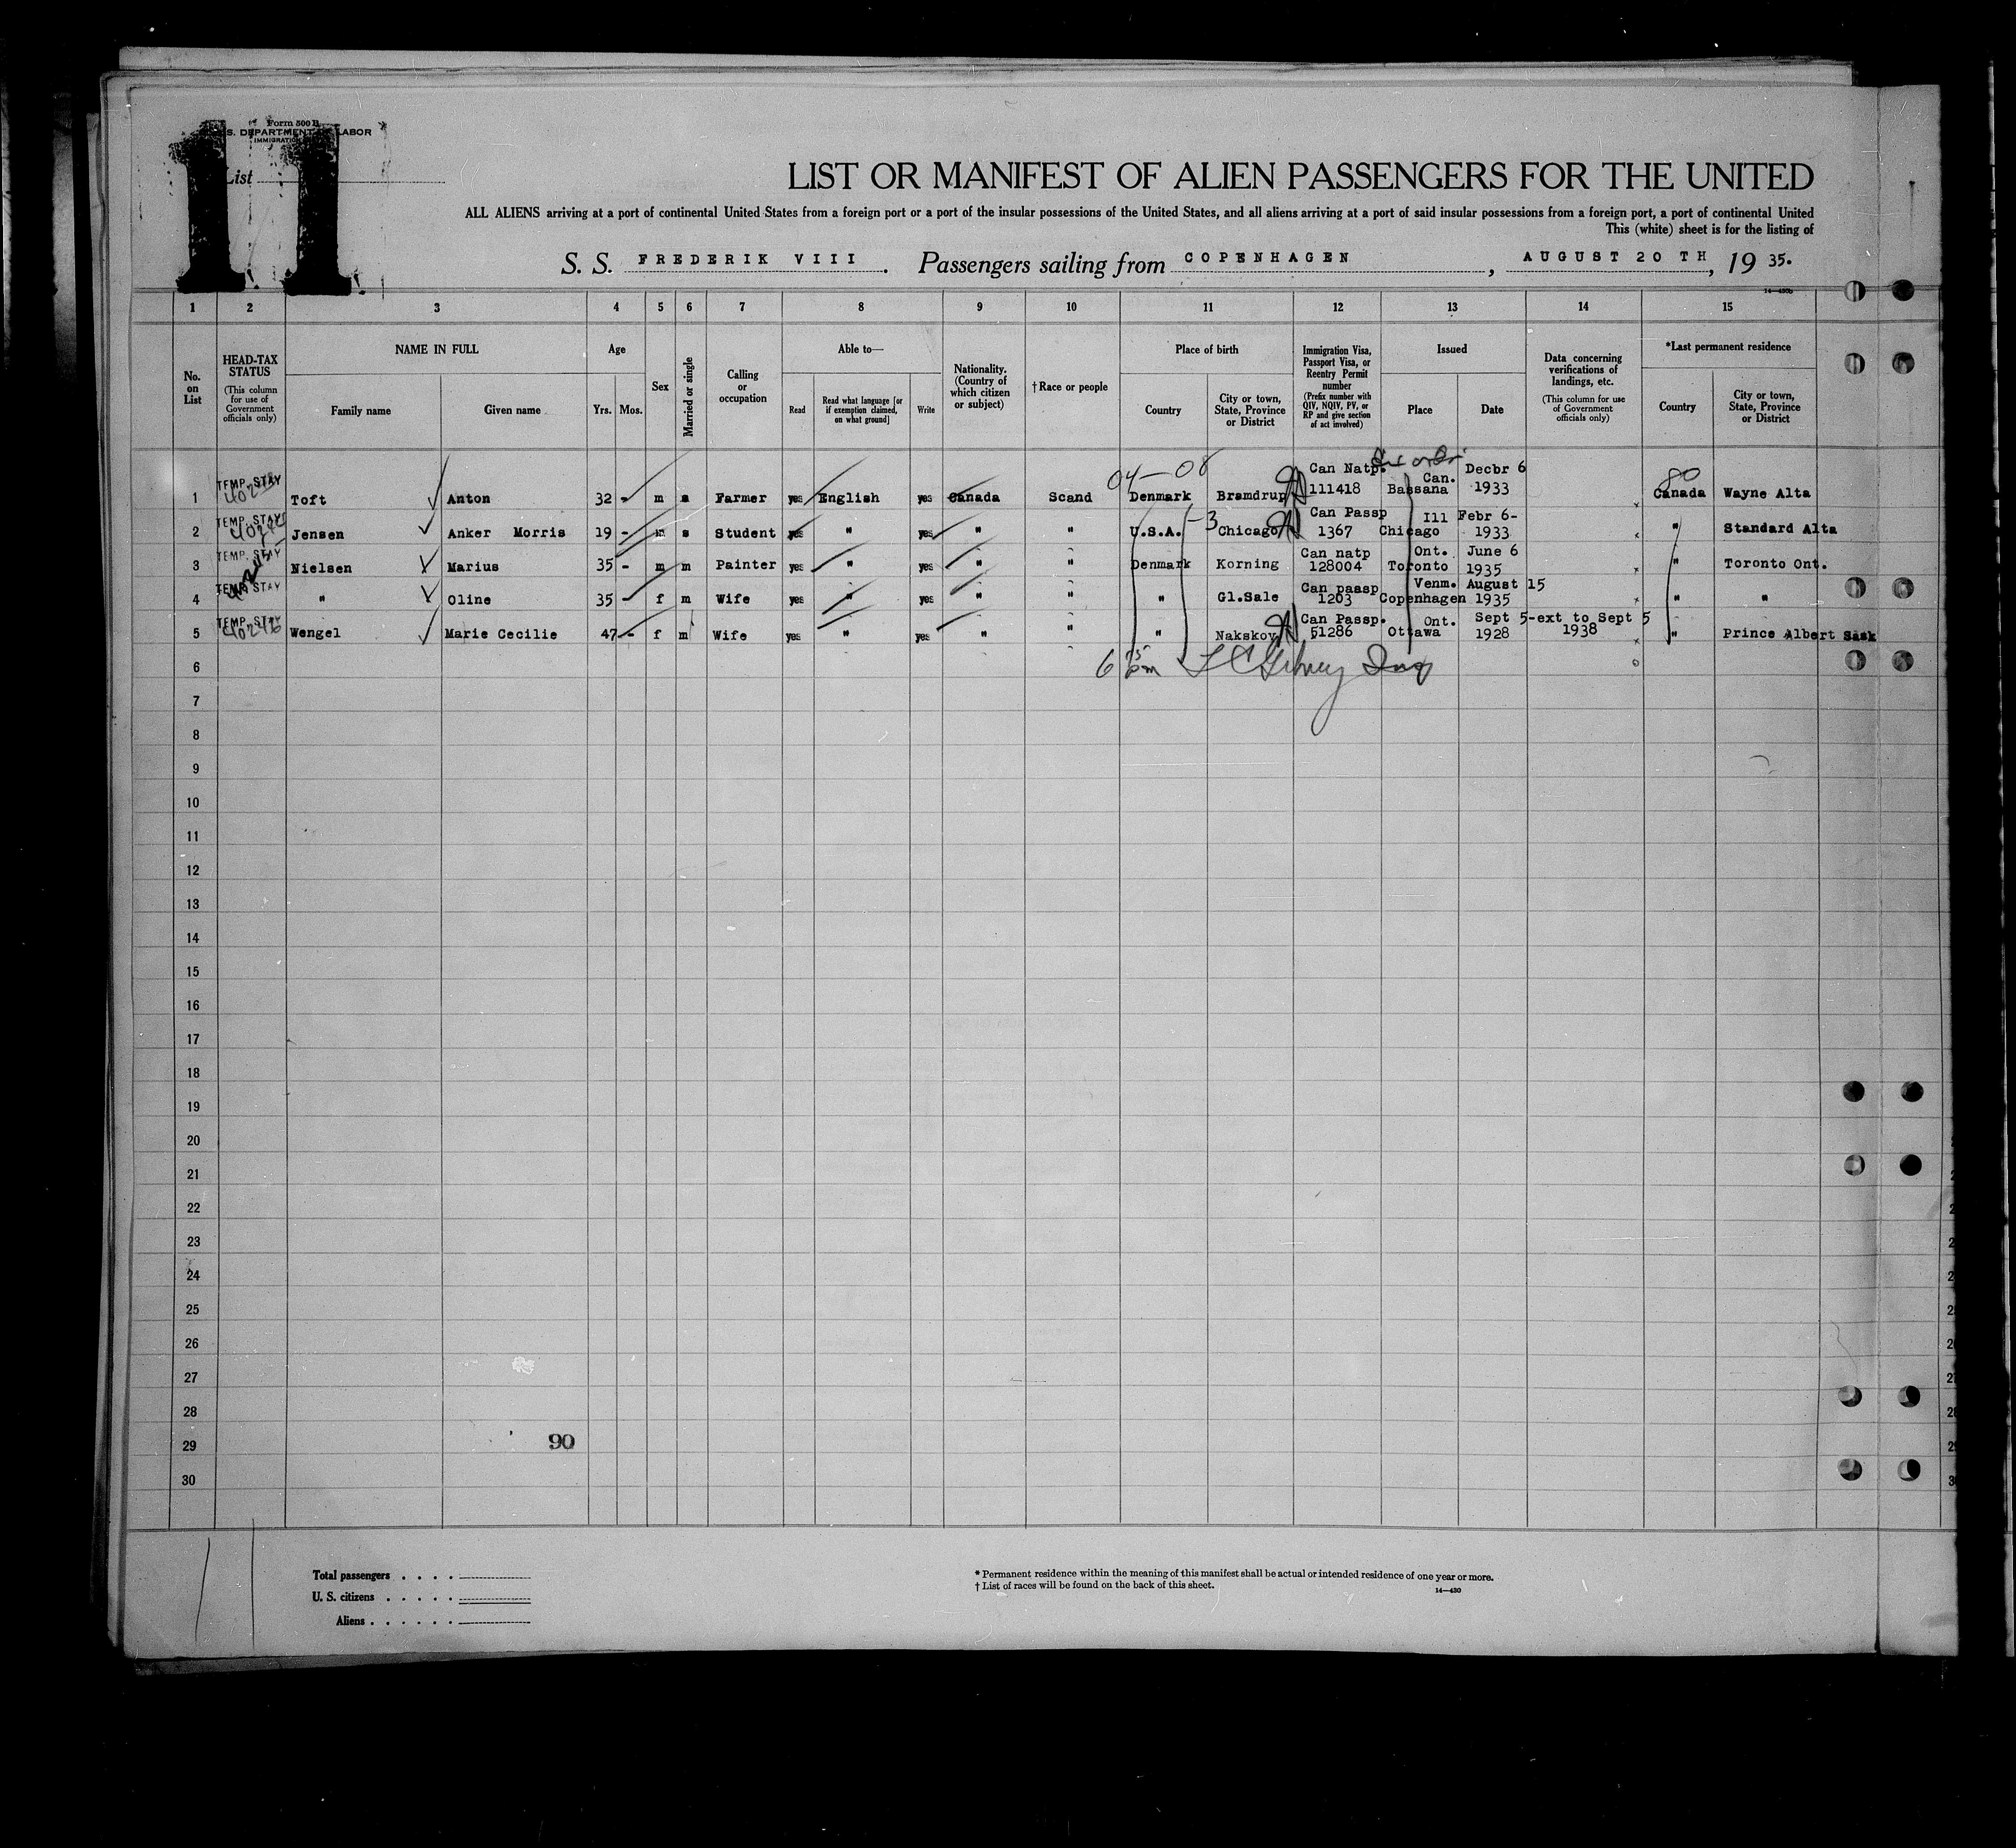 11
Form 500 B
S. DEPARTMENT OF LABOR
IMMIGRATION
List
LIST OR MANIFEST OF ALIEN PASSENGERS FOR THE UNITED
ALL ALIENS arriving at a port of continental United States from a foreign port or a port of the insular possessions of the United States, and all aliens arriving at a port of said insular possessions from a foreign port, a port of continental United
This (white) sheet is for the listing of
S. S. FREDERIK VIII. Passengers sailing from COPENHAGEN, AUGUST 20 TH, 19 35.
14—430b
1 2 3 4 5 6 7 8 9 10 11 12 13 14 15
No. on List
HEAD-TAX STATUS (This column for use of Government officials only)
NAME IN FULL
Family name Given name
Age
Yrs. Mos.
Sex
Married or single
Calling or occupation
Able to—
Read
Read what language [or if exemption claimed, on what ground]
Write
Nationality. (Country of which citizen or subject)
†Race or people
Place of birth
Country
City or town, State, Province or District
Immigration Visa, Passport Visa, or Reentry Permit number (Prefix number with QIV, NQIV, PV, or RP and give section of act involved)
Issued
Place Date
Data concerning verifications of landings, etc. (This column for use of Government officials only)
*Last permanent residence
Country
City or town, State, Province or District
04—08
80
1 TEMP. STAY Toft Anton 32 - m s Farmer yes English yes Canada Scand Denmark Bramdrup Can Natp. 111418 Can. Bassana Decbr 6 1933 Canada Wayne Alta
2 TEMP. STAY Jensen Anker Morris 19 - m s Student yes " yes " " U.S.A. -3 Chicago Can Passp 1367 Ill Chicago Febr 6- 1933 " Standard Alta
3 TEMP. STAY Nielsen Marius 35 - m m Painter yes " yes " " Denmark Korning Can natp 128004 Ont. Toronto June 6 1935 " Toronto Ont.
4 TEMP. STAY " Oline 35 - f m Wife yes " yes " " " Gl.Sale Can passp 1203 Venm. Copenhagen August 15 1935 " "
5 TEMP. STAY Wengel Marie Cecilie 47 - f m Wife yes " yes " " " Nakskov Can Passp. 51286 Ont. Ottawa Sept 5-ext to Sept 5 1928 1938 " Prince Albert Sask
6
7
8
9
10
11
12
13
14
15
16
17
18
19
20
21
22
23
24
25
26
27
28
29
90
30
Total passengers
U. S. citizens
Aliens
* Permanent residence within the meaning of this manifest shall be actual or intended residence of one year or more.
† List of races will be found on the back of this sheet.
14—430